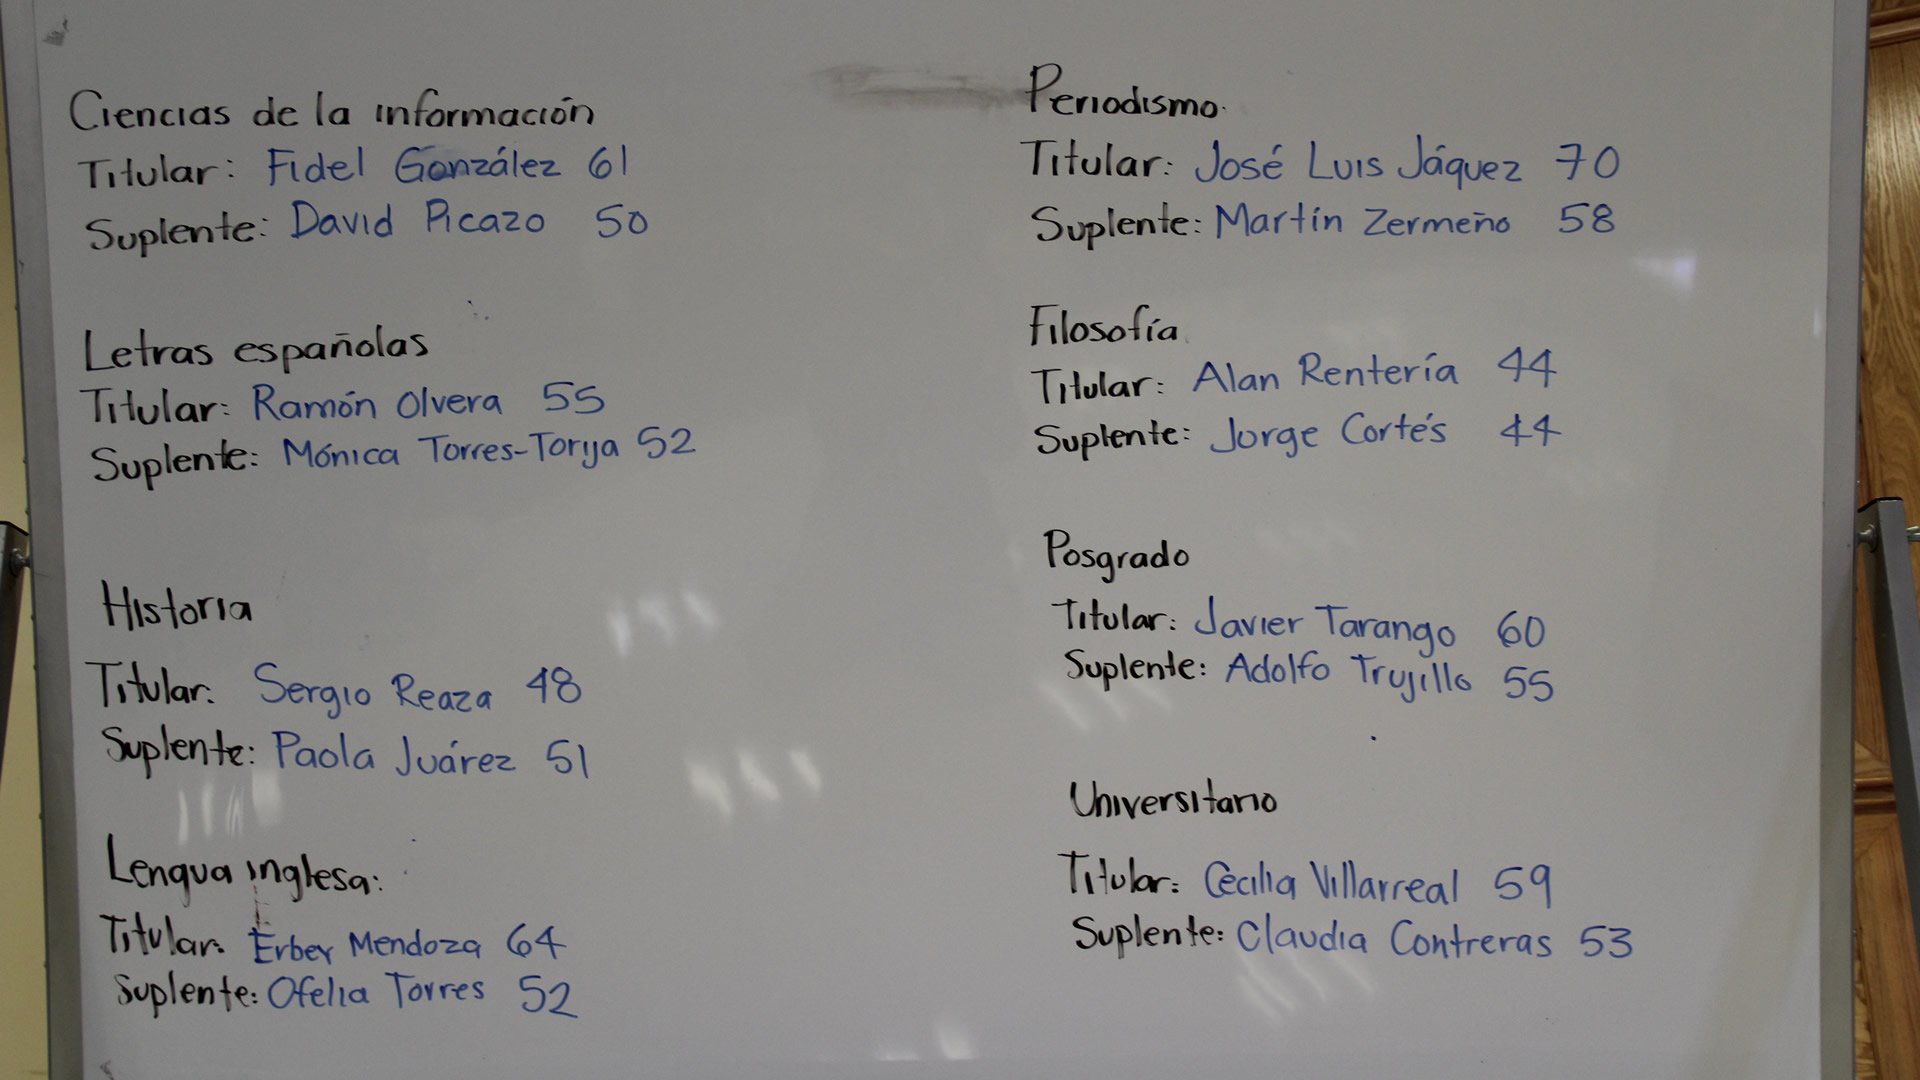 Ciencias de la información
Titular: Fidel González 61
Suplente: David Picazo 50
Letras españolas
Titular: Ramón Olvera 55
Suplente: Mónica Torres-Torija 52
Historia
Titular: Sergio Reaza 48
Suplente: Paola Juárez 51
Lengua inglesa:
Titular: Erbey Mendoza 64
Suplente: Ofelia Torres 52
Periodismo.
Titular: José Luis Jáquez 70
Suplente: Martín Zermeño 58
Filosofía
Titular: Alan Rentería 44
Suplente: Jorge Cortés 44
Posgrado
Titular: Javier Tarango 60
Suplente: Adolfo Trujillo 55
Universitario
Titular: Cecilia Villarreal 59
Suplente: Claudia Contreras 53